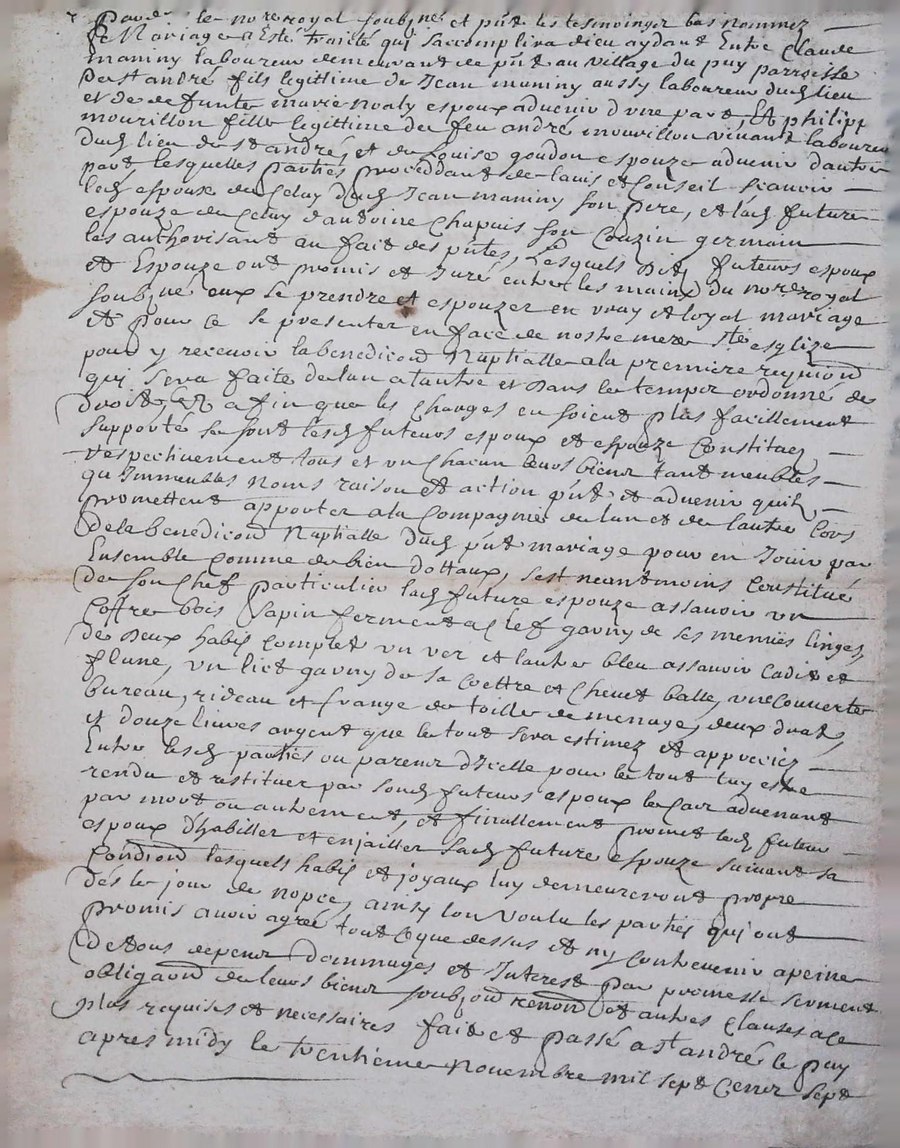 Pardt le notre royal soubzné et pñt les tesmoinger bas nommez
de Mariage a Esté traité qui saccomplira dieu aydant Entre Claude
maniny laboureur demeurant de pñt au village du puy parroisse
de st andré fils legittime de Jean maniny aussy laboureur dud lieu
et de defunte marie noaly espoux advenir d'une part, Et philipp
mourillon fille legittime de feu andré mourillon vivant laboureur
dud lieu de st andré, et de Louise goudon espouze advenir d'autre
part lesquelles parties proceddant de lavis et Conseil scavoir
led espoux de Celuy dud Jean maniny son pere, et lad future
espouze de Celuy dantoine Chapuis son Couzin germain
les authorisant au fait des pñtes, Lesquels dits futeurs espoux
et Espouze ont promis et Juré entre les mains du notre royal
soubzné eux se prendre et espouzer en vray et loyal mariage
et pour Ce se presenter en face de nostre mere ste esglize
pour y recevoir la benediction Nuptialle a la premiere requiond
qui sera faite de lun a lautre et dans le temps ordonné de
droit, et a fin que les Charges en soient plus facillement
supporté se sont lesd futeurs espoux et espouze Constituez
respectivement tous et un Chacun leurs biens tant meubles
qu'Immeubles noms raison et action pñt et advenir quils
promettent apporter a la Compagnie de lun et de lautre lors
de la benediction Nuptialle dud pñt mariage pour en Jouir par
Ensemble Comme de bien dottaux, sest neantmoins Constitué
de son Chef particulier lad future espouze assavoir un
Coffre bois sapin fermant a Clef garny de ses menues linges,
de deux habis Complet un ver et lautre bleu assavoir Cadis et
flune, un lict garny de sa Coettre et Chevet balle, une Couverte
bureau, rideau et frange de toille de menage, deux draps,
et douze livres argent que le tout sera estimez et appreciez
Entre lesd parties ou parens dIcelle pour le tout luy estre
rendu et restituer par soud futeurs espoux le Cas advenant
par mort ou autrement, et finallement promet led futeur
espoux dhabiller et enjailler sad future espouze suivant sa
Condiond lesquels habis et joyaux luy demeureront propre
des le jour de nopce, ainsy lon voulu les parties qui ont
promis avoir agréé tout Ceque dessus et ny Contrevenir a peine
de tous depens dommages et Interest par promesse serment
obligaond de leurs biens soubzond renond et autres Clauses a ce
plus requises et necessaires fait et passé a st andré le puy
apres midy le trentieme novembre mil sept Cens sept